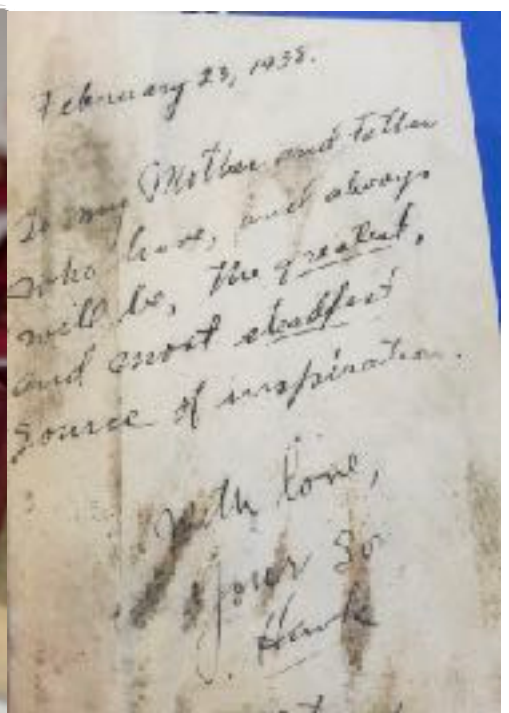 February 23, 1938.
To my Mother and Father
who have, and always
will be, the greatest,
and most steadfast
source of inspiration.
With love,
Your So
Hank